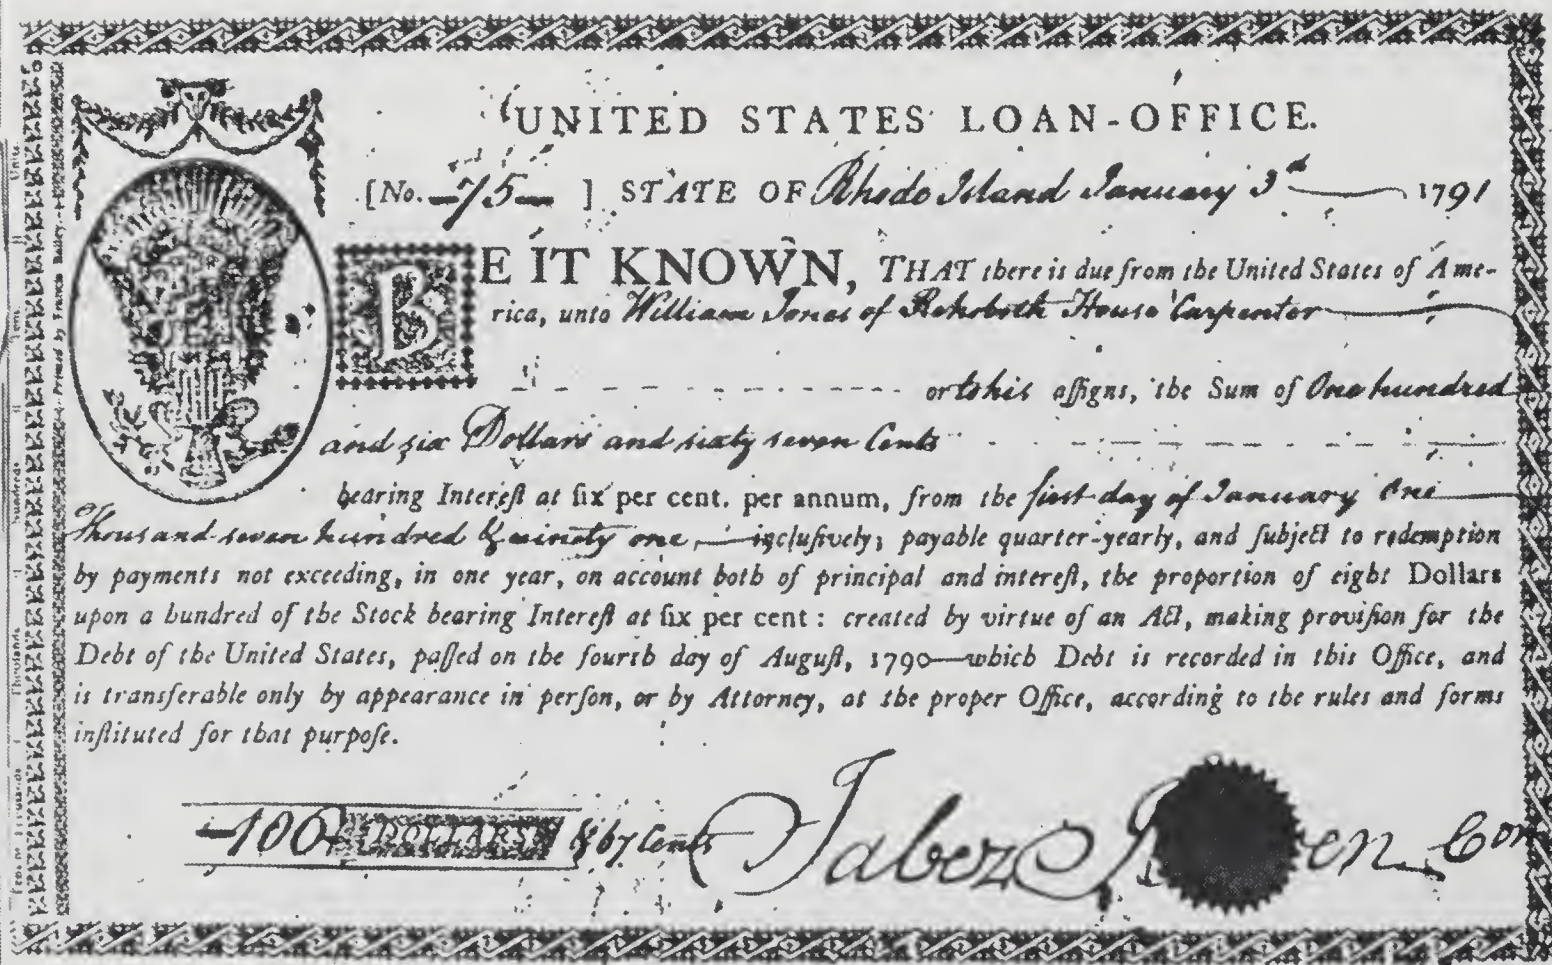 UNITED STATES LOAN-OFFICE.
[No. 75 ] STATE OF Rhode Island January 3d 1791
BE IT KNOWN, THAT there is due from the United States of Ame-
rica, unto William Jones of Rehoboth House Carpenter
or to his aſſigns, the Sum of One hundred
and six Dollars and sixty seven Cents
bearing Intereſt at ſix per cent. per annum, from the first day of January One
Thousand seven hundred & ninety one, incluſively; payable quarter-yearly, and ſubject to redemption
by payments not exceeding, in one year, on account both of principal and intereſt, the proportion of eight Dollars
upon a hundred of the Stock bearing Intereſt at ſix per cent: created by virtue of an Act, making proviſion for the
Debt of the United States, paſſed on the fourth day of Auguſt, 1790—which Debt is recorded in this Office, and
is transferable only by appearance in perſon, or by Attorney, at the proper Office, according to the rules and forms
inſtituted for that purpoſe.
106 DOLLARS & 67 Cents
Jabez
Printed by Francis Bailey.
Thouſands
Hundreds
Tens
Units